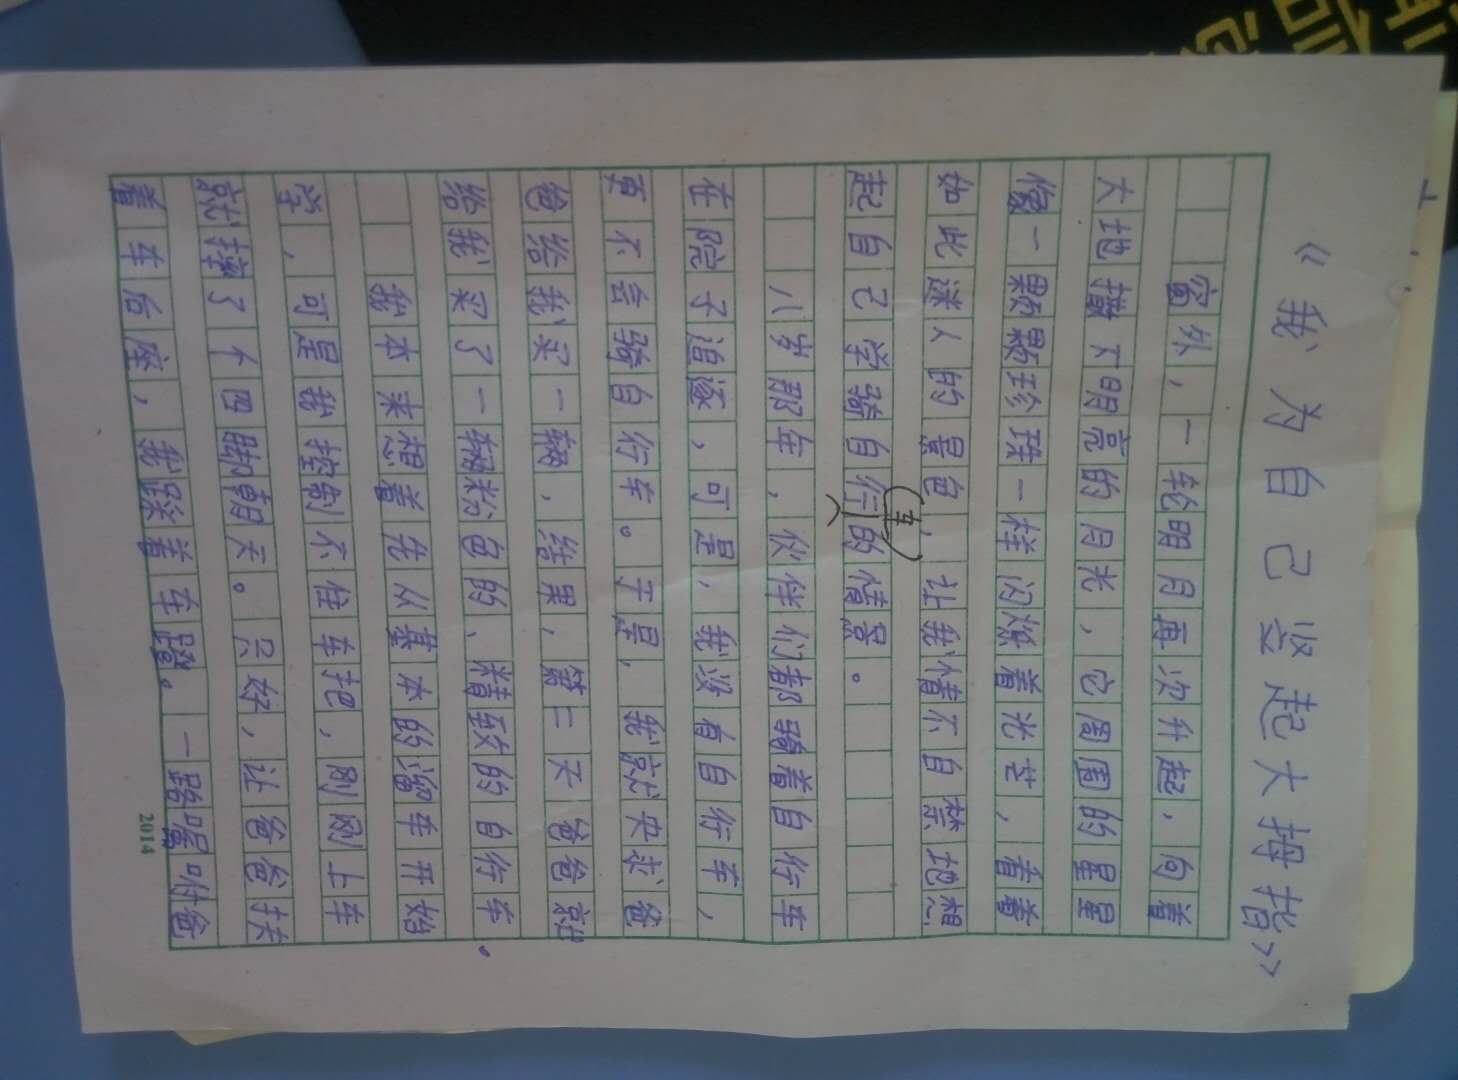 《我为自己竖起大拇指》
窗外，一轮明月再次升起，向着
大地撒下明亮的月光，它周围的星星
像一颗颗珍珠一样闪烁着光芒，看着
如此迷人的景色，让我情不自禁地想
起自己学骑自行(车)的情景。
八岁那年，伙伴们都骑着自行车
在院子追逐，可是，我没有自行车，
更不会骑自行车。于是，我就央求爸
爸给我买一辆，结果，第二天爸爸就
给我买了一辆粉色的、精致的自行车。
我本来想着先从基本的溜车开始
学，可是我控制不住车把，刚刚上车
就摔了个四脚朝天。只好，让爸爸扶
着车后座，我踩着车蹬。一路嘱咐爸
2014